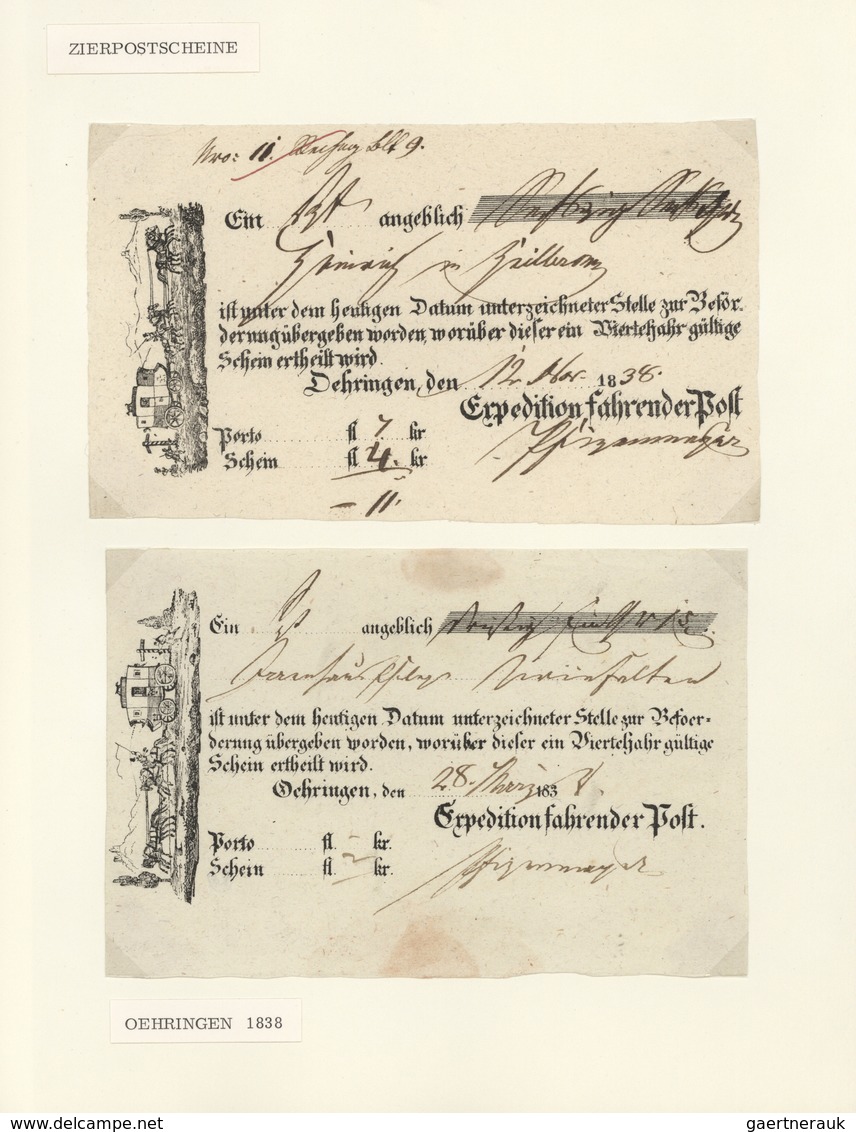 ZIERPOSTSCHEINE
Nro: 11. blt 9.
Ein angeblich
Heinrich in Heilbronn
ist unter dem heutigen Datum unterzeichneter Stelle zur Beför-
derung übergeben worden, worüber dieser ein Vierteljahr gültige
Schein ertheilt wird.
Oehringen, den 12 Nov. 1838.
Expedition fahrender Post
Porto fl 7 kr
Schein fl 4. kr
– 11.
Ein angeblich
ist unter dem heutigen Datum unterzeichneter Stelle zur Befoer-
derung übergeben worden, worüber dieser ein Vierteljahr gültige
Schein ertheilt wird.
Oehringen, den 28. März 1838.
Expedition fahrender Post.
Porto fl. – kr.
Schein fl. kr.
OEHRINGEN 1838
www.delcampe.net
gaertnerauk